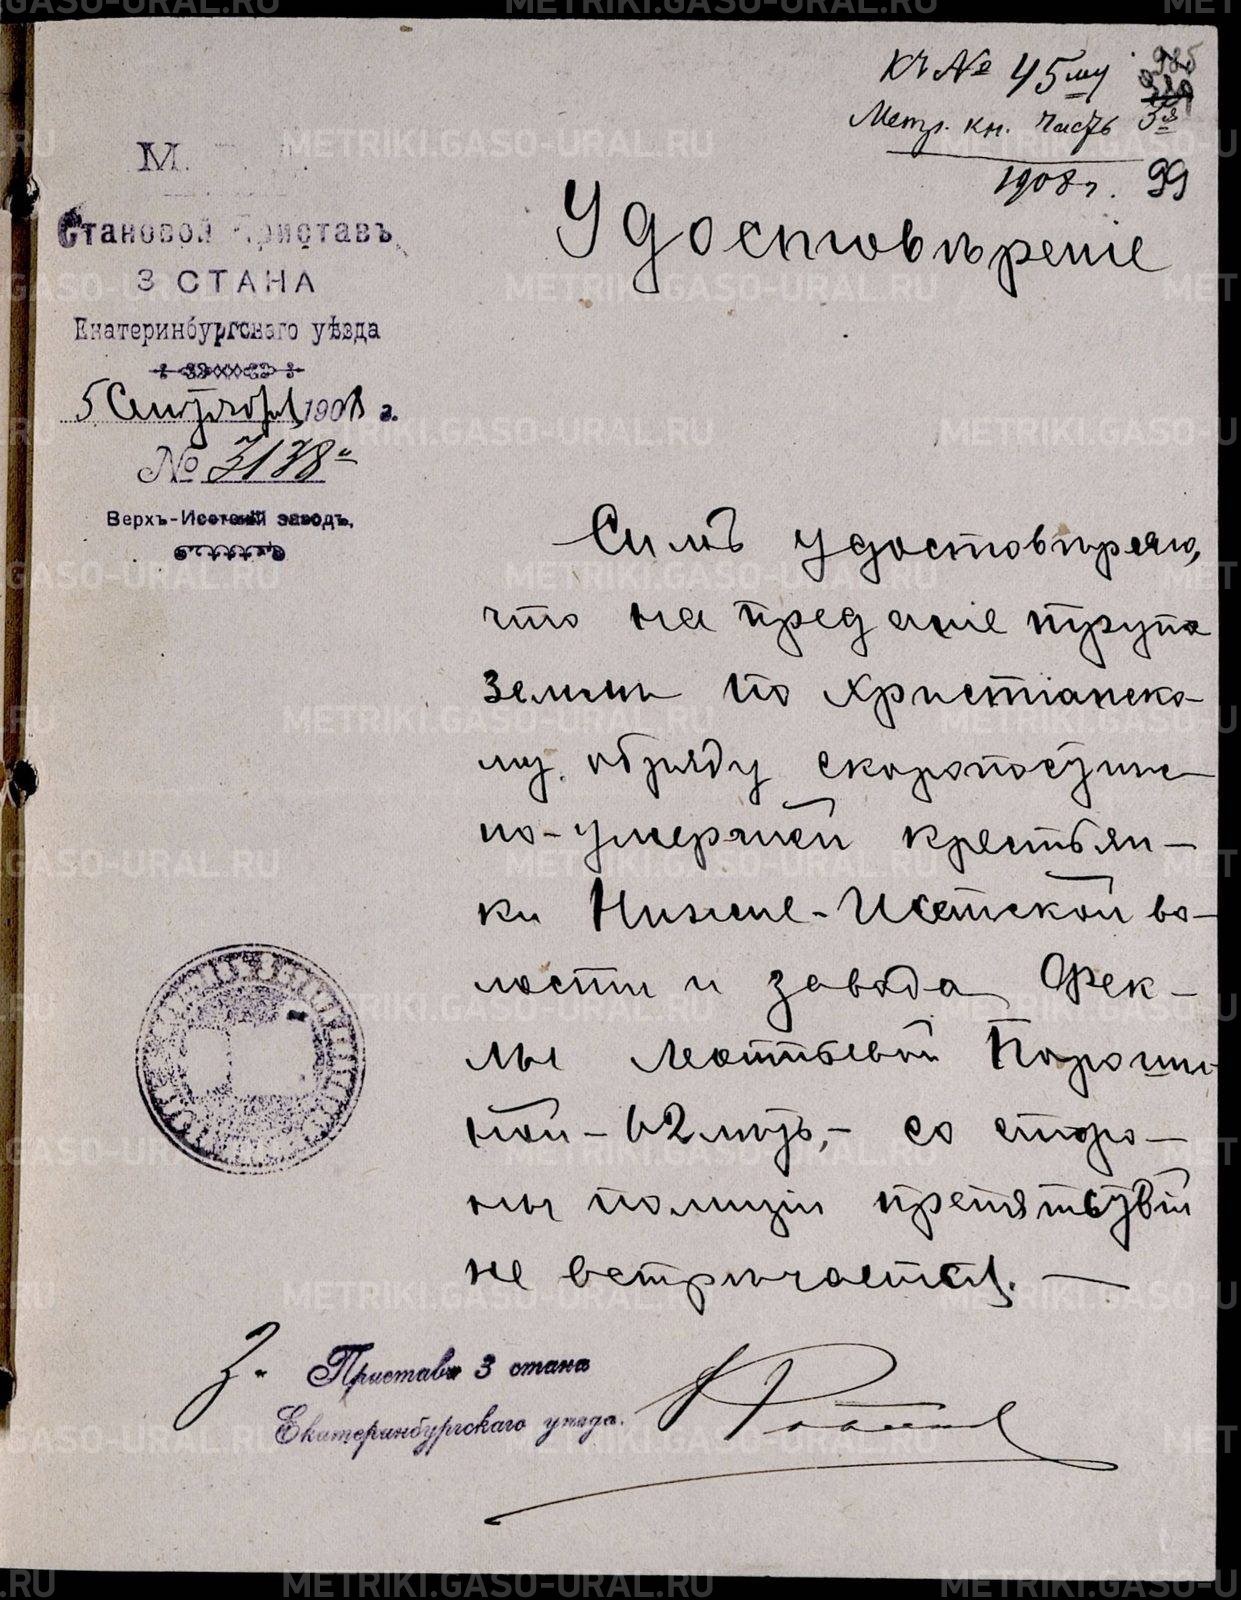 Къ № 45му
985
Метр. кн. часть 3я
1908 г. 99
М.
Становой Приставъ
3 СТАНА
Екатеринбургскаго уѣзда
5 Сентября 1908 г.
№ 3138
Верхъ-Исетскій заводъ,
Удостовѣреніе
Симъ удостовѣряю,
что на преданіе трупа
землѣ по христіанско-
му обряду скоропостиж-
но-умершей крестьян-
ки Нижне-Исетской во-
лости и завода Фек-
лы Леонтьевой Пороши-
ной - 62 лѣтъ, - со сторо-
ны полиціи препятствій
не встрѣчается. —
З. Приставъ 3 стана
Екатеринбургскаго уѣзда.
METRIKI.GASO-URAL.RU